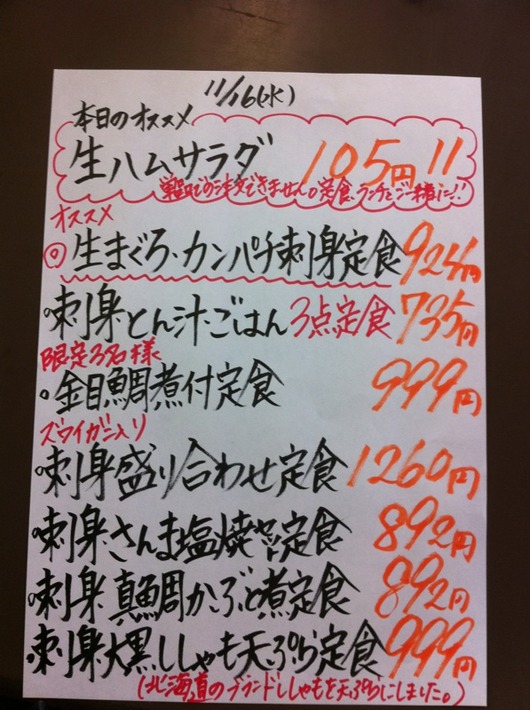 11/16(水)
本日のオススメ
生ハムサラダ 105円!!
単品での注文できません。定食、ランチとご一緒に!!
オススメ
◎生まぐろ・カンパチ刺身定食 924円
・刺身・とん汁・ごはん3点定食 735円
限定3名様
・金目鯛煮付定食 999円
ズワイガニ入り
・刺身盛り合わせ定食 1260円
・刺身・さんま塩焼や定食 892円
・刺身・真鯛かぶと煮定食 892円
・刺身大黒ししゃも天ぷら定食 999円
(北海道のブランドししゃもを天ぷらにしました。)